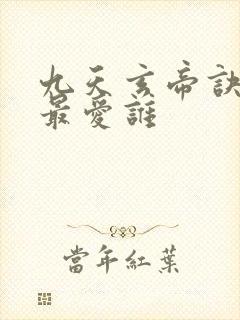 九天玄帝訣
最愛誰
當年紅葉